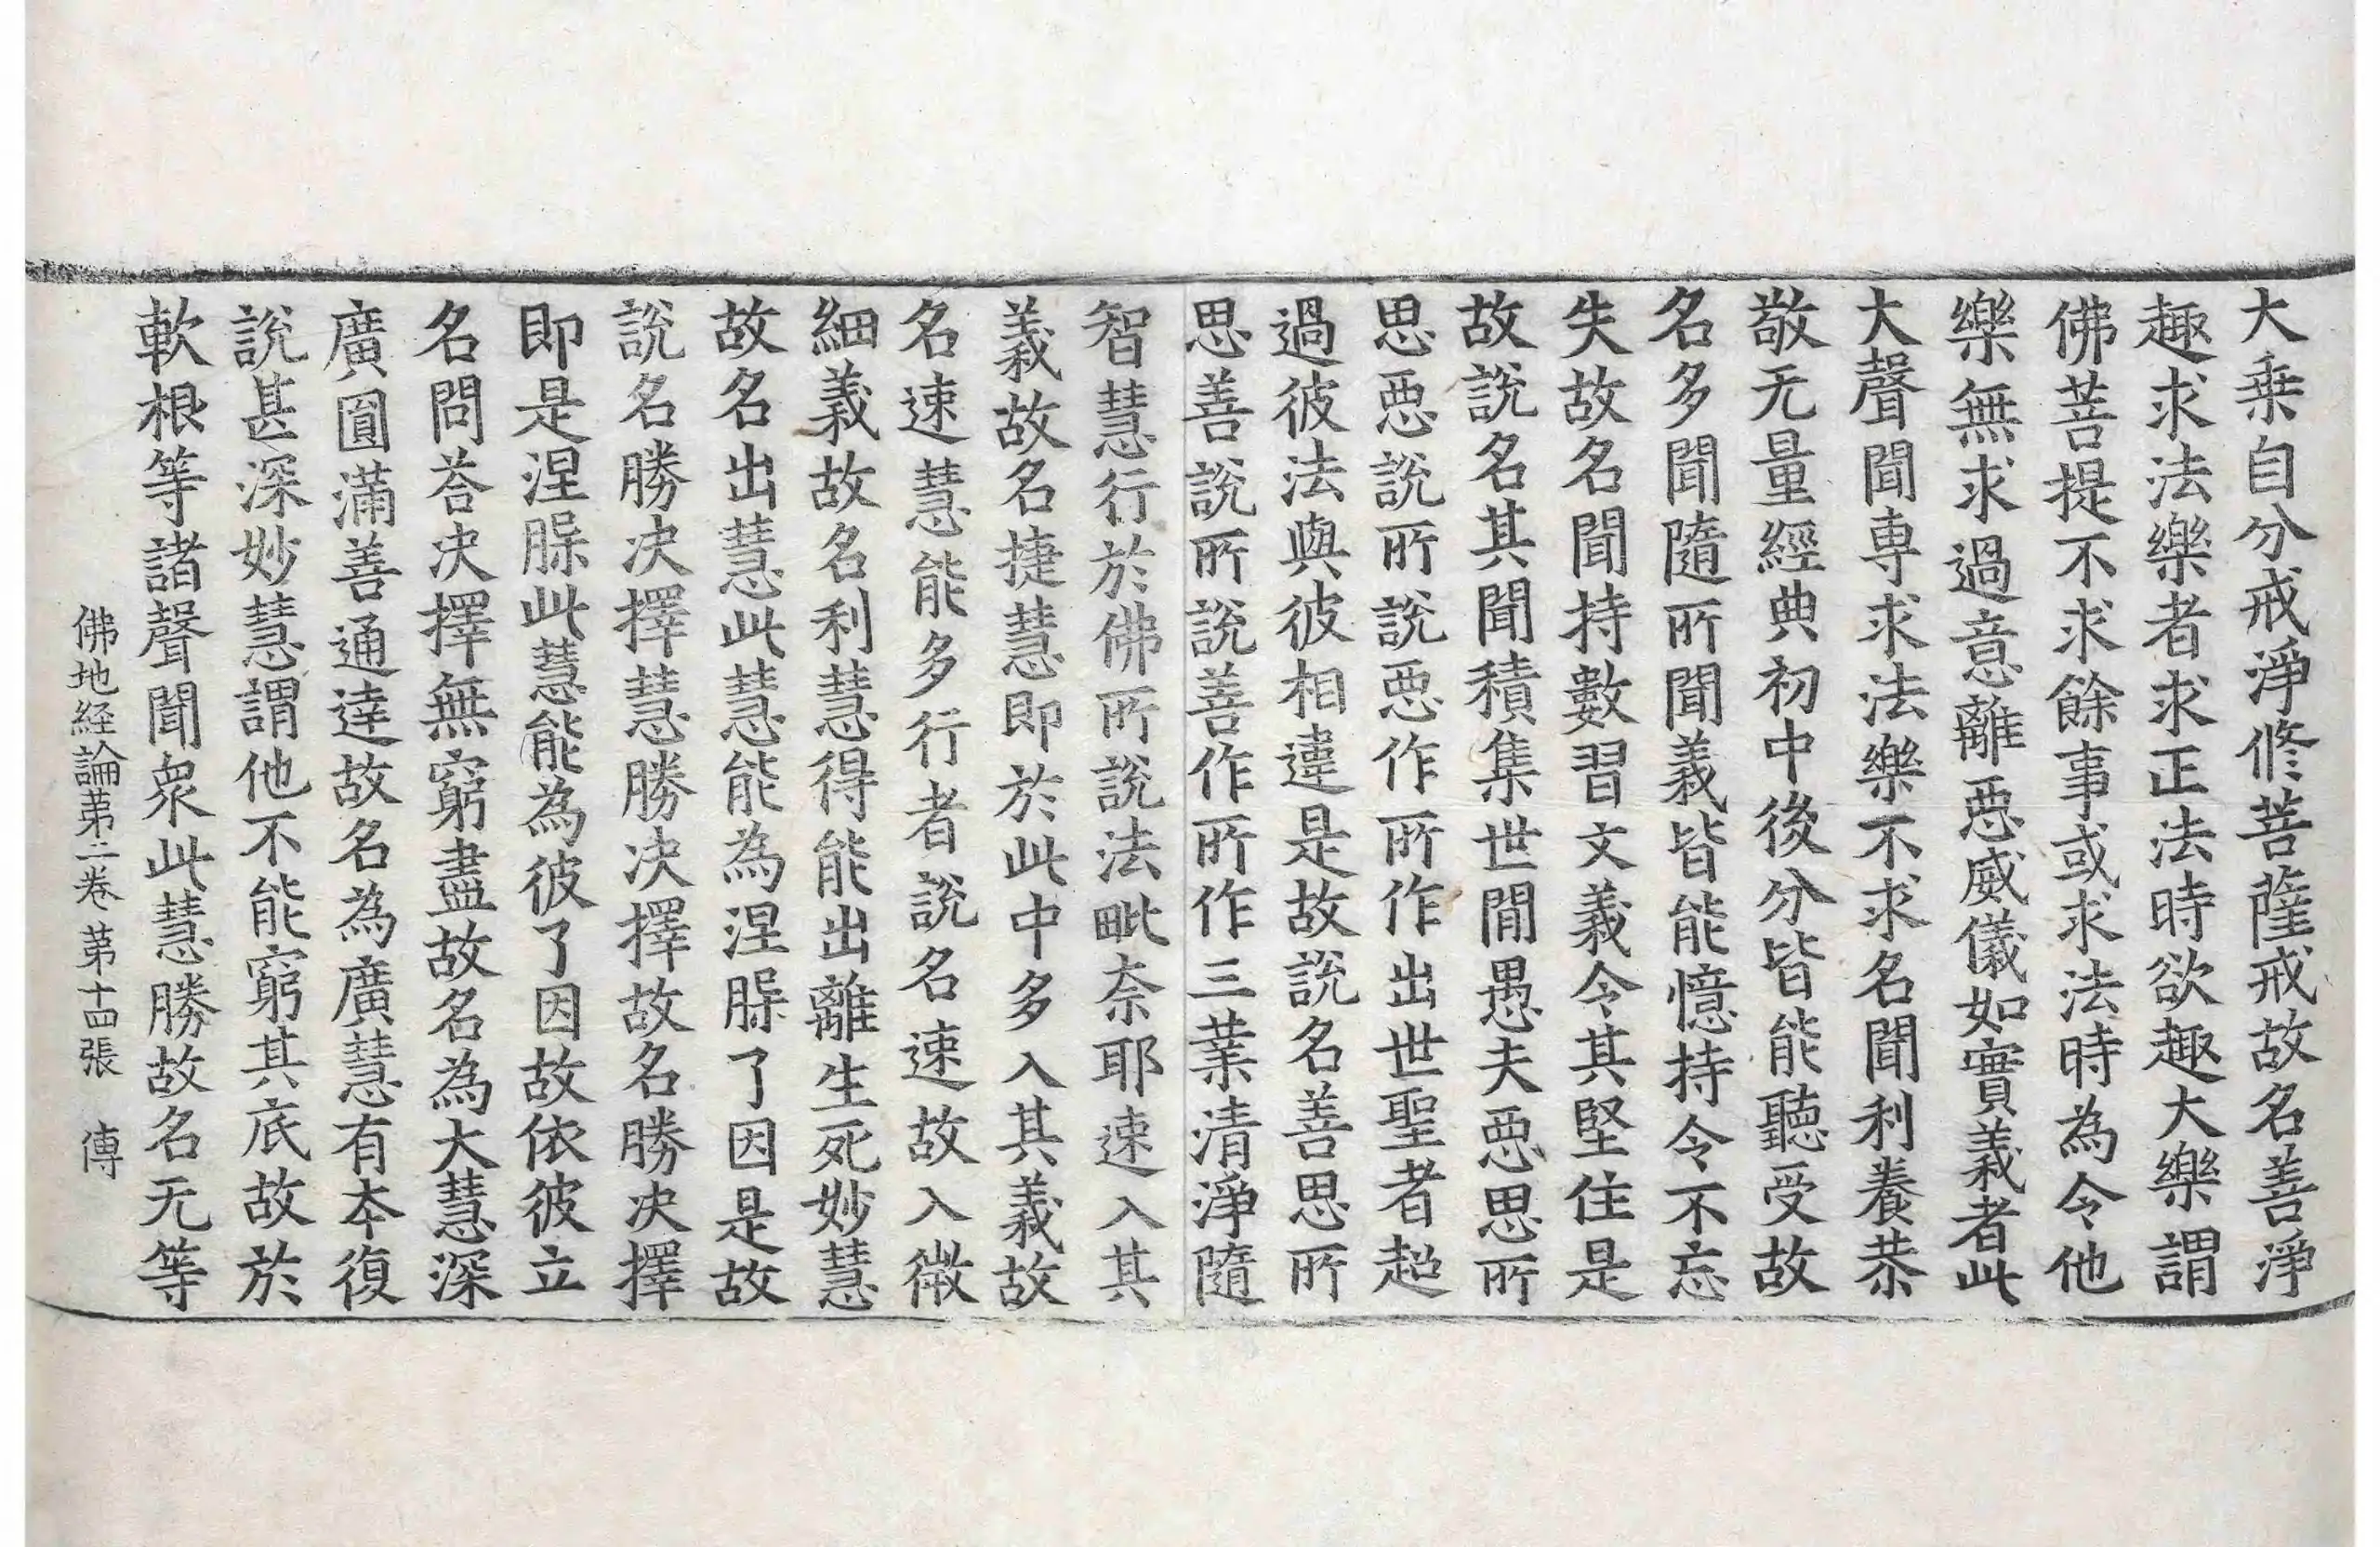 大乗自分戒淨修菩薩戒故名善淨
趣求法樂者求正法時欲趣大樂謂
佛菩提不求餘事或求法時為令他
樂無求過意離惡威儀如實義者此
大聲聞專求法樂不求名聞利養恭
敬无量經典初中後分皆能聽受故
名多聞隨所聞義皆能憶持令不忘
失故名聞持數習文義令其堅住是
故說名其聞積集世間愚夫惡思所
思惡說所說惡作所作出世聖者超
過彼法與彼相違是故說名善思所
思善說所說善作所作三業清淨隨
智慧行於佛所說法毗奈耶速入其
義故名捷慧即於此中多入其義故
名速慧能多行者說名速故入微
細義故名利慧得能出離生死妙慧
故名出慧此慧能為涅槃了因是故
說名勝决擇慧勝决擇故名勝决擇
即是涅槃此慧能為彼了因故依彼立
名問荅决擇無窮盡故名為大慧深
廣圓滿善通達故名為廣慧有本復
說甚深妙慧謂他不能窮其底故於
軟根等諸聲聞衆此慧勝故名无等
佛地経論苐二卷 苐十四張 傳